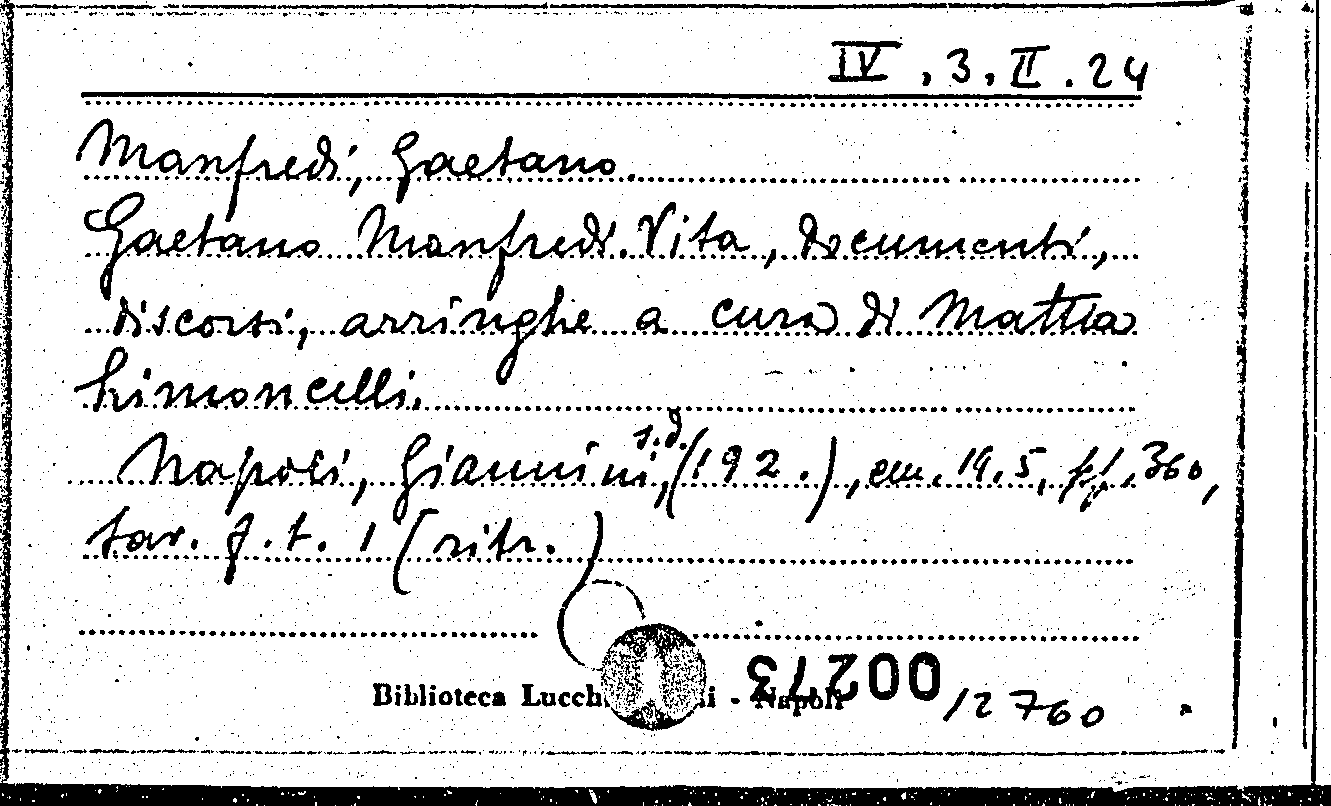 IV.3.II.24
Manfredi, Gaetano.
Gaetano Manfredi. Vita, documenti,
discorsi, arringhe a cura di Mattia
Limoncelli.
s.d.
Napoli, Giannini, (192.), cm. 19.5, pp. 360,
tav. f.t. 1 (ritr.)
Biblioteca Lucch li - Napoli
12760